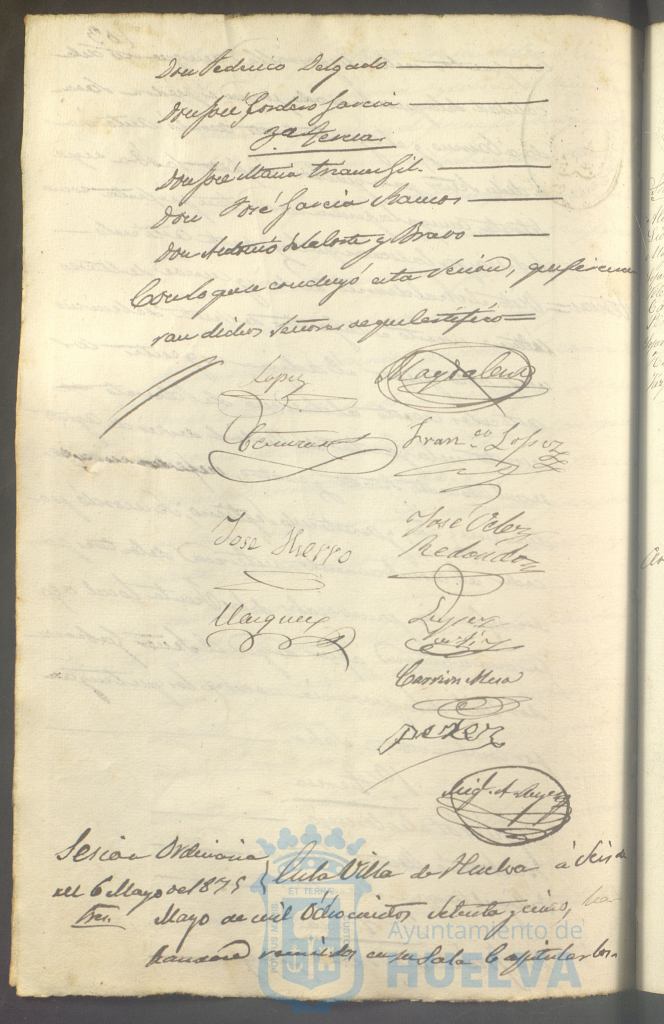 Don Federico Delgado
Don José Cordero Garcia
3ª terna.
Don José Maria Trianes Gil.
Don José Garcia Ramos
Don Antonio de la Corte y Bravo
Con lo que se concluyó esta Sesion, que firma
ran dichos Señores de que Certifico =
Lopez
Magdalena
Franco Lopez
Jose Hierro
José Velez
Redondo
Marquez
Lopez
Carrion Mesa
Perez
Sesion Ordinaria
del 6 Mayo de 1875
En la Villa de Huelva á Seis de
Mayo de mil Ochocientos setenta y cinco, ha
reunidos en su Sala Capitular los
Ayuntamiento de
HUELVA